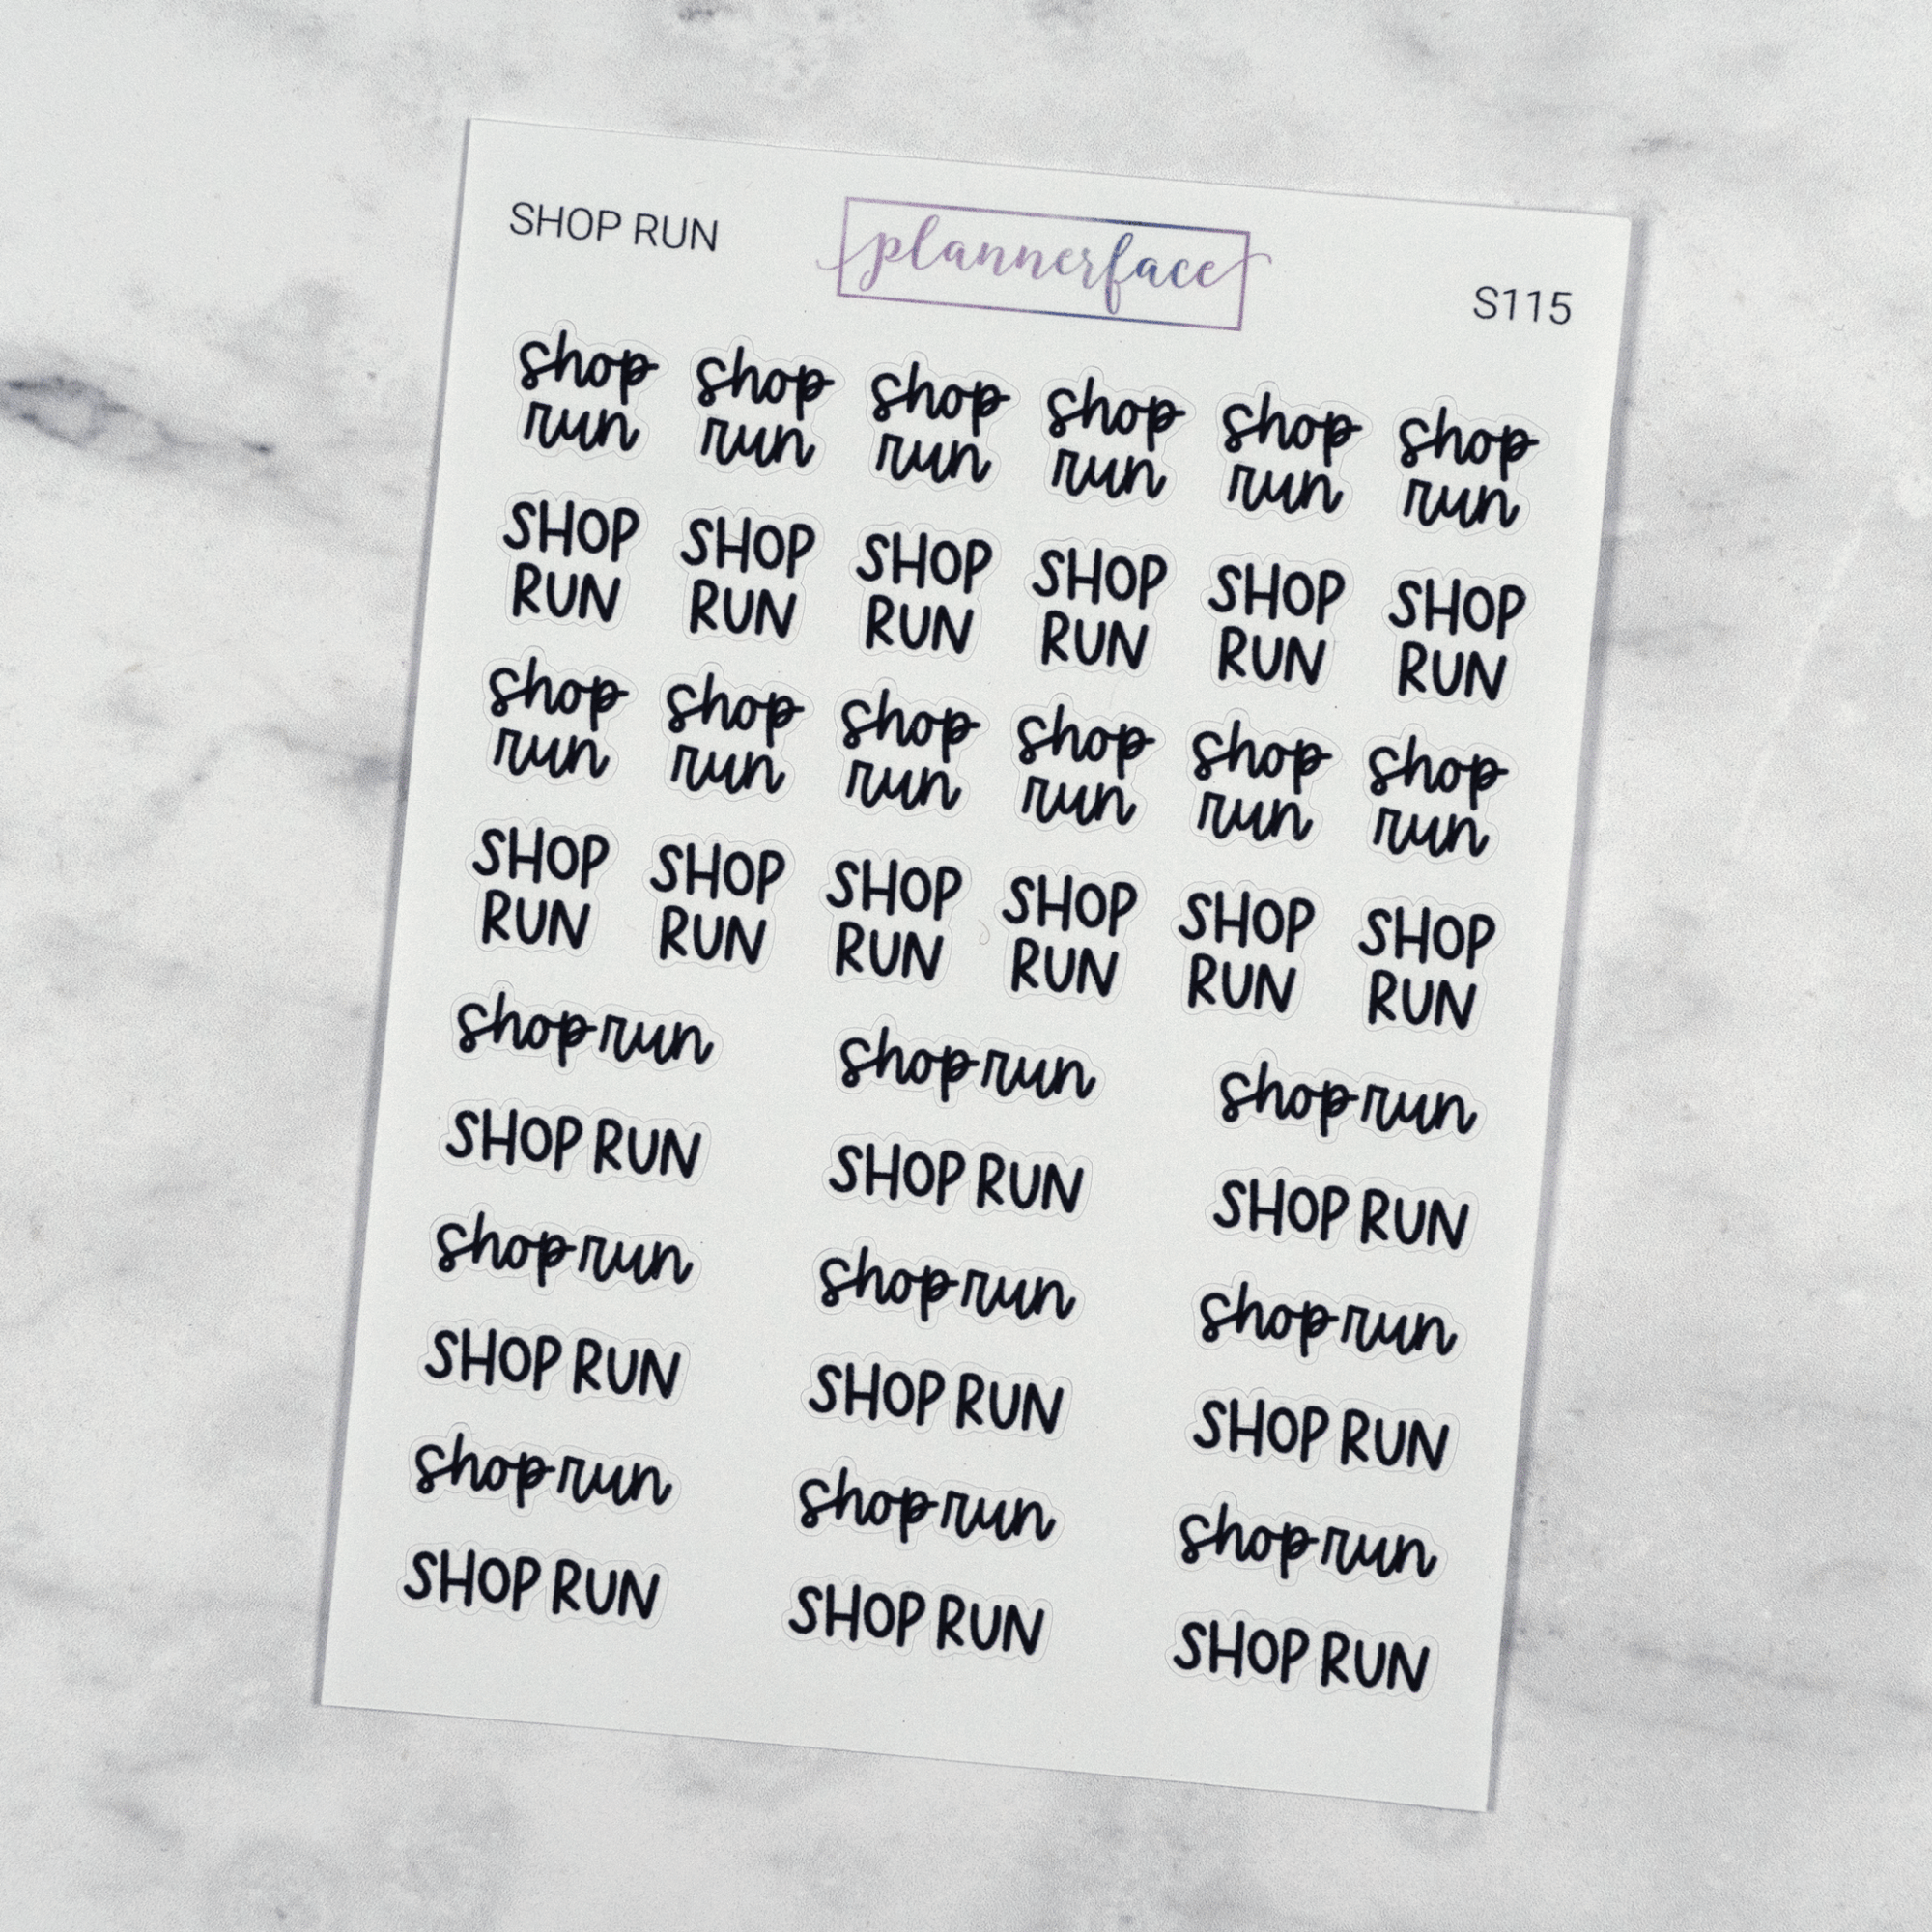 SHOP RUN
plannerface
S115
shop shop shop shop shop shop
run run run run run run
SHOP SHOP SHOP SHOP SHOP SHOP
RUN RUN RUN RUN RUN RUN
shop shop shop shop shop shop
run run run run run run
SHOP SHOP SHOP SHOP SHOP SHOP
RUN RUN RUN RUN RUN RUN
shop run shop run shop run
SHOP RUN SHOP RUN SHOP RUN
shop run shop run shop run
SHOP RUN SHOP RUN SHOP RUN
shop run shop run shop run
SHOP RUN SHOP RUN SHOP RUN